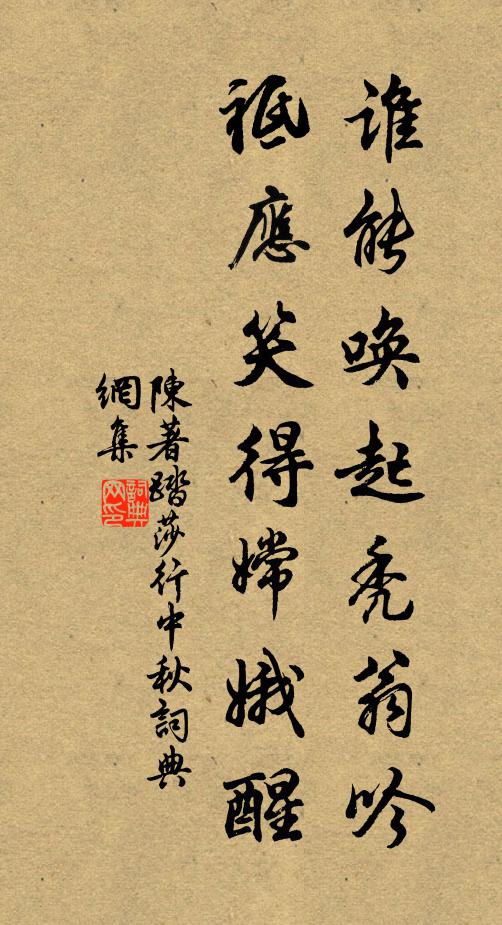 誰能喚起禿翁吟
祗應笑得嫦娥醒
陳著踏莎行中秋詞典
網集
詞典網印